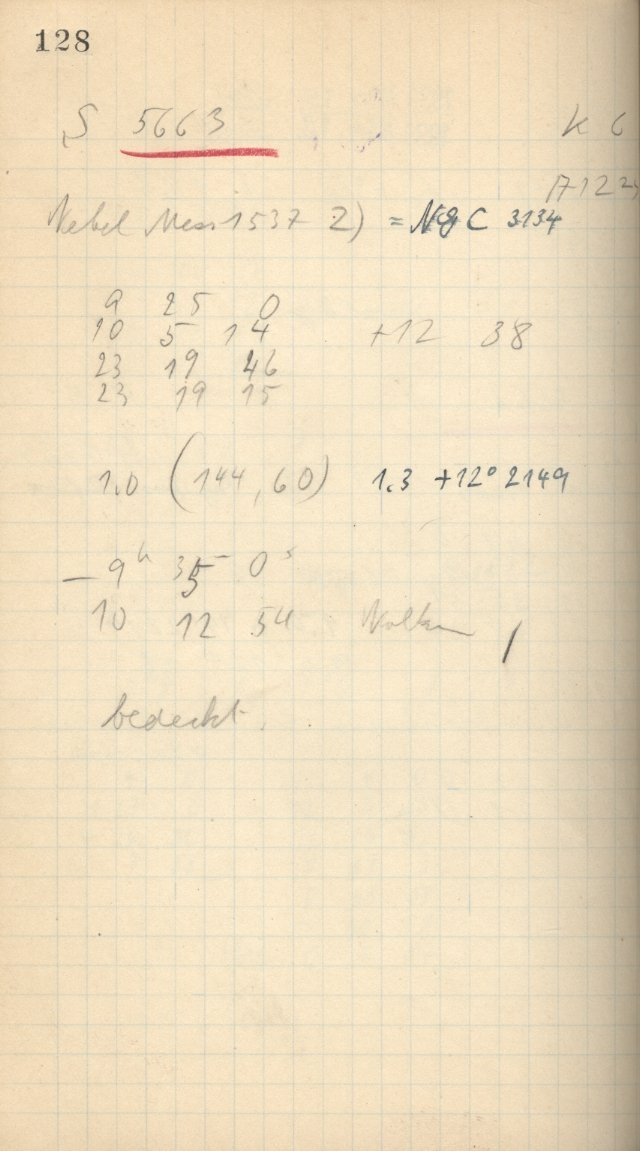 128
S 5663 K 6
171223
Nebel Mess 1537 2) = NGC 3134
9 25 0
10 5 14 +12 38
23 19 46
23 19 15
1.0 (144, 60) 1.3 +12° 2149
— 9ʰ 35 0ˢ
10 12 54 Wolken /
bedeckt.